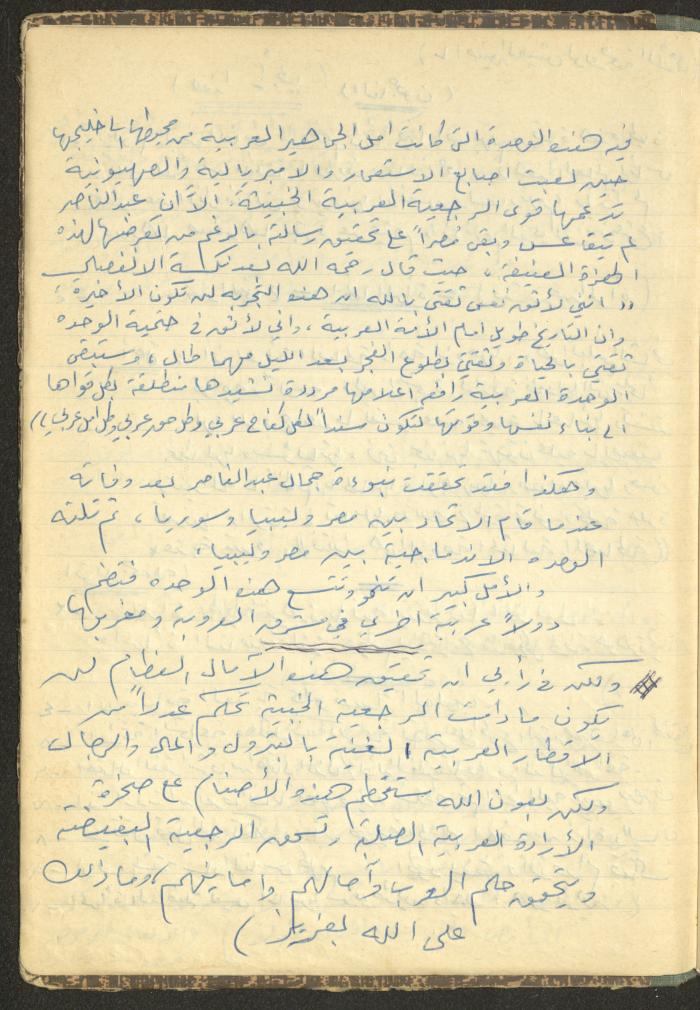 في هذه الوحدة التي كانت امل الجماهير العربية من محيطها الى خليجها
حين لعبت اصابع الاستعمار والامبريالية والصهيونية
تدعمها قوى الرجعية العربية الخبيثة. الا ان عبدالناصر
لم يتقاعس وبقى مصراً على تحقيق رسالته بالرغم من تعرضها لهذه
الهزة العنيفة، حيث قال رحمه الله بعد نكسة الانفصال
(( انني لأثق نفس ثقتي بالله ان هذه التجربه لن تكون الأخيرة،
وان التاريخ طويل امام الأمة العربية، واني لأثق في حتمية الوحده
ثقتي بالحياة وثقتي بطلوع الفجر بعد الليل مهما طال، وستبقى
الوحدة العربية رافعه اعلامها مرددة نشيدها منطلقة بكل قواها
الى بناء نفسها وقوتها لتكون سنداً لكل كفاح عربي وكل حق عربي وكل امل عربي ))
وهكذا فقد تحققت نبوءة جمال عبدالناصر بعد وفاته
عندما قام الاتحاد بين مصر وليبيا وسوريا، ثم تلته
الوحده الاندماجية بين مصر وليبيا.
والأمل كبير ان تنمو وتتسع هذه الوحده فتضم
دولاً عربية اخرى في مشرق العروبة ومغربها
ولكن في رأيي ان تحقيق هذه الآمال العظام لن
يكون ما دامت الرجعية الخبيثة تحكم عدداً من
الاقطار العربية الغنية بالبترول والمال والرجال
ولكن بعون الله ستتحطم هذه الأصنام على صخرة
الأرادة العربية الصلبة وتسحق الرجعية البغيضة
ويتحقق حلم العرب وآمالهم وامانيهم، وما ذلك
على الله بعزيز )